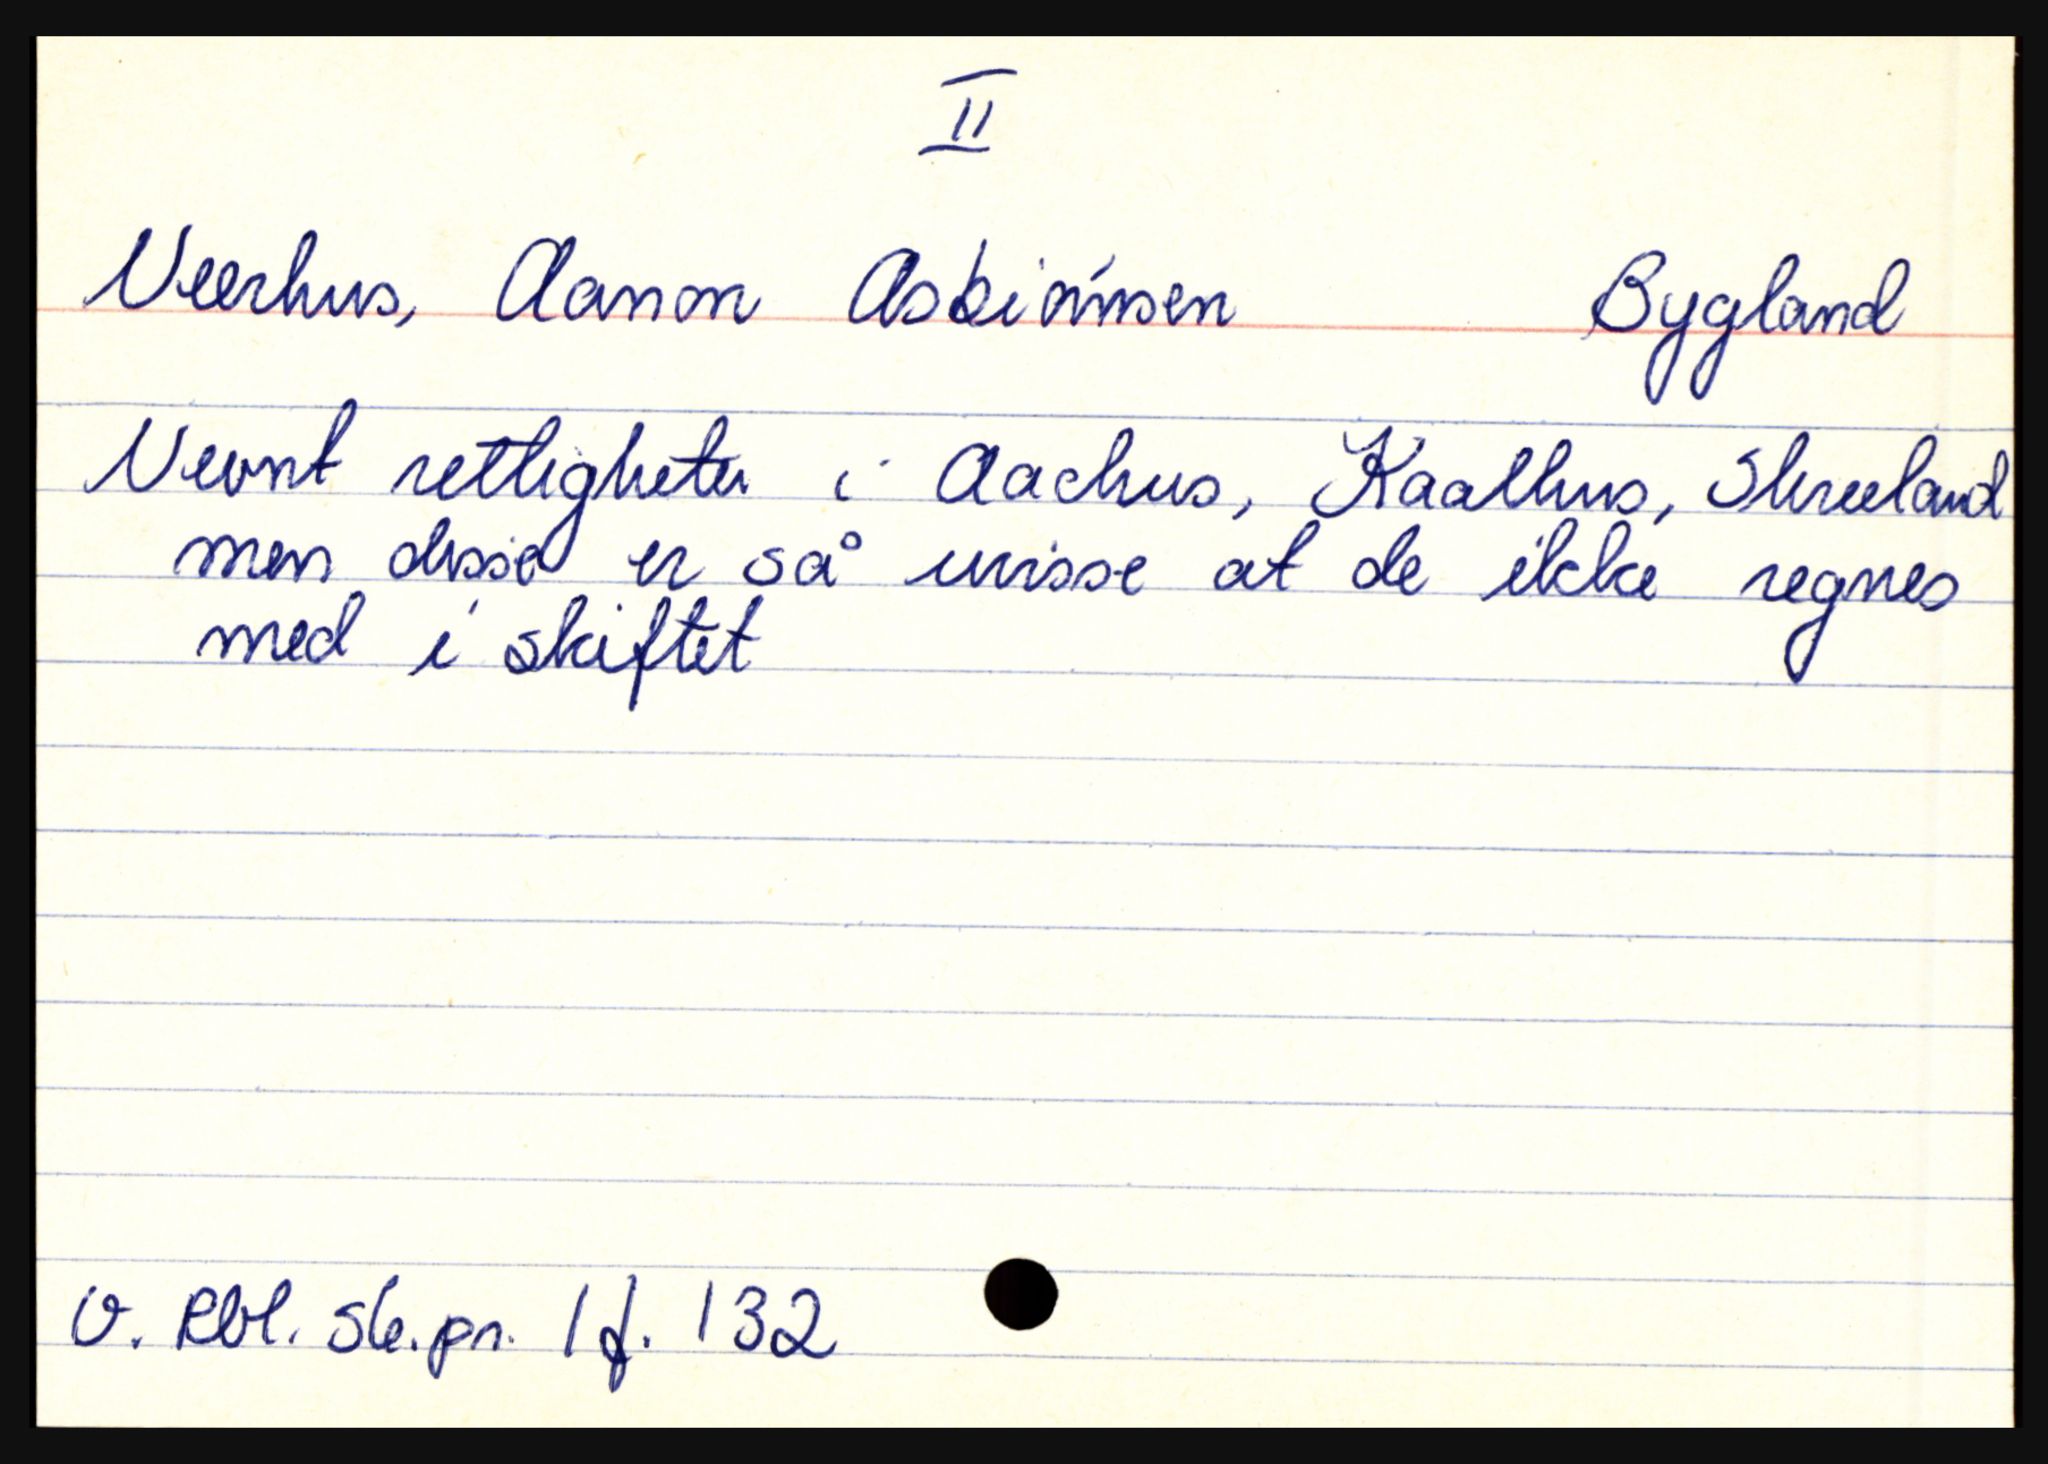 II
Veerhus, Aanon Asbiørnsen Bygland
Nevnt rettigheter i Aachus, Kaalhus, Skreeland
men disse er så uvisse at de ikke regnes
med i skiftet
V. Rbl. sk.pr. 1 f. 132